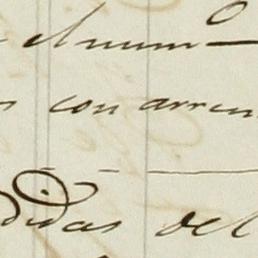 el num o
con arren
didas del